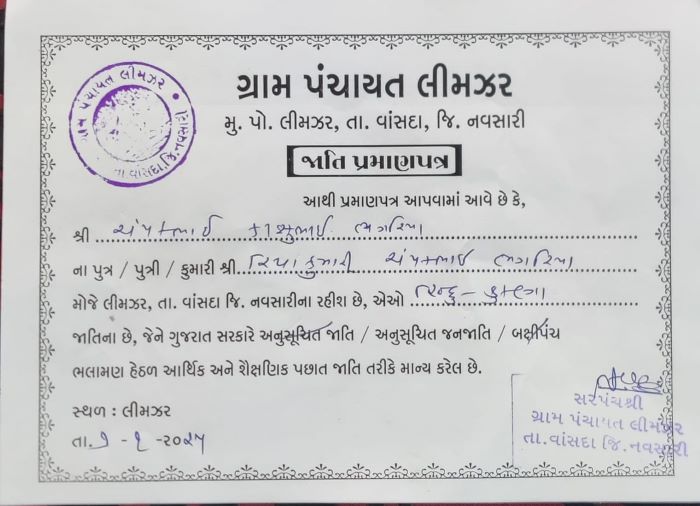 ગ્રામ પંચાયત લીમઝર
તા.વાંસદા,જિ.નવસારી
ગ્રામ પંચાયત લીમઝર
મુ. પો. લીમઝર, તા. વાંસદા, જિ. નવસારી
જાતિ પ્રમાણપત્ર
આથી પ્રમાણપત્ર આપવામાં આવે છે કે,
શ્રી ચંપકભાઈ
ના પુત્ર / પુત્રી / કુમારી શ્રી. રિયાકુમારી ચંપકભાઈ
મોજે લીમઝર, તા. વાંસદા જિ. નવસારીના રહીશ છે, એઓ હિન્દુ - કુકણા
જાતિના છે, જેને ગુજરાત સરકારે અનુસૂચિત જાતિ / અનુસૂચિત જનજાતિ / બક્ષીપંચ
ભલામણ હેઠળ આર્થિક અને શૈક્ષણિક પછાત જાતિ તરીકે માન્ય કરેલ છે.
સ્થળ : લીમઝર
તા. ૧ - ૧ -૨૦૨૫
સરપંચશ્રી
ગ્રામ પંચાયત લીમઝર
તા.વાંસદા જિ.નવસારી